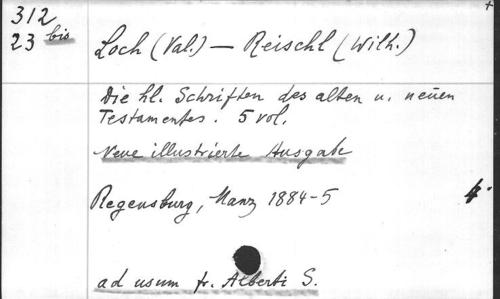 312
23 bis
Loch (Val.) — Reischl (Wilh.)
Die hl. Schriften des alten u. neuen
Testamentes. 5 vol.
Neue illustrierte Ausgabe
Regensburg, Manz 1884-5
4.
ad usum fr. Alberti S.